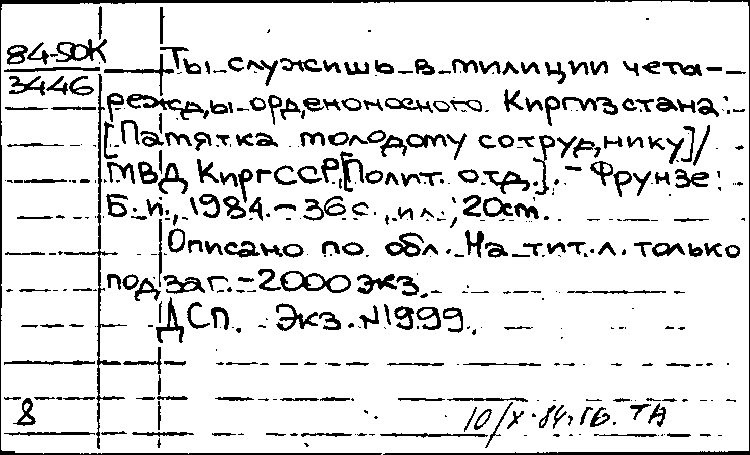 84-50К
3446
Ты служишь в милиции четы-
режды орденоносного Киргизстана:
[Памятка молодому сотруднику]/
МВД КиргССР, [Полит. отд.]. - Фрунзе:
Б.и., 1984. - 36 с., ил.; 20 cm.
Описано по обл. На тит. л. только
подзаг. - 2000 экз.
ДСП. Экз. N1999.
8
10/X-84г.